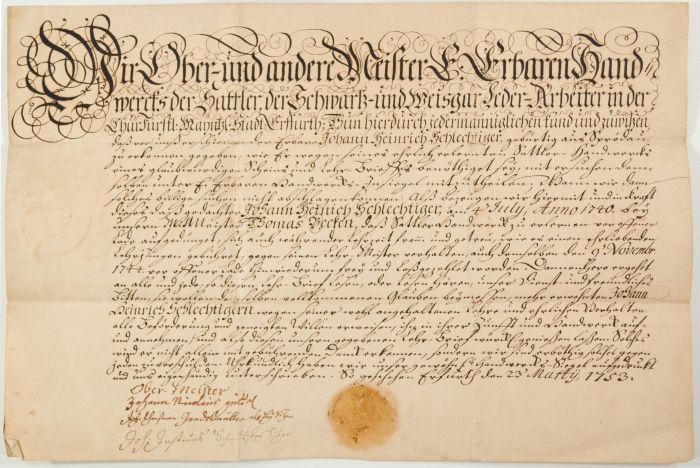 Wir Ober- und andere Meister E: Erbaren Hand-
wercks der Sattler, der Schwartz- und Weisgar Leder-Arbeiter in der
Churfürstl. Mayntz. Stadt Erffurth; Thun hierdurch jedermänniglichen kund und zuwißen
daß vor uns erschienen der Erbare Johann Heinrich Schlechtiger, gebürtig aus
zu erkennen gegeben, wie Er wegen seines ehrlich erlernten Sattler-Handwercks
eines glaubwürdigen Scheins und Lehr-Brieffs benöthiget sey, mit ersuchen
selben unter E. Erbaren Handwercks-Insiegel mitzutheilen; Wann wir dann
solches billige suchen nicht abschlagen können: Alß bezeugen wir hiermit und in krafft
dieses daß gedachter Johann Heinrich Schlechtiger, am 4 July, Anno 1740. bey
unsern Thomas Becken, daß Sattler-Handwerck zu erlernen vor offener
Lade auffgedinget, sich auch währender Lehrzeit fromm und getreu, wie es einem ehrliebenden
Lehrjungen gebühret, gegen seinen Lehr-Meister verhalten, auch demselben den 9. November
1744 vor offener Lade hinwiederum frey und loßgezehlet worden. Dannenhero ergehet
an alle und jede so diesen Lehr-Brieff lesen, oder lesen hören, unser Dienst- und freundliches
Bitten, sie wollen demselben vollkommenen Glauben beymessen, mehr erwehnten Johann
Heinrich Schlechtigern wegen seiner wohl ausgehaltenen Lehre und ehrlichen Verhaltens
alle Beförderung und geneigten Willen erweisen, ihn in ihrer Zunfft und Handwerck auff-
und annehmen und also diesen unsern gegebenen Lehr-Brieff würcklich genießen lassen. Solches
wird er nicht allein mit gebührenden Danck erkennen, sondern wir sind erböthig solches gegen
jeden zu verschulden. Uhrkundlich haben wir unser gewöhnl. Handwercks-Siegel auffgedruckt
und uns eigenhändig unterschrieben. So geschehen Erffurth den 23 Marty, 1753.
Ober Meister
Johann Nicolaus
Christian
Joh. Justinus